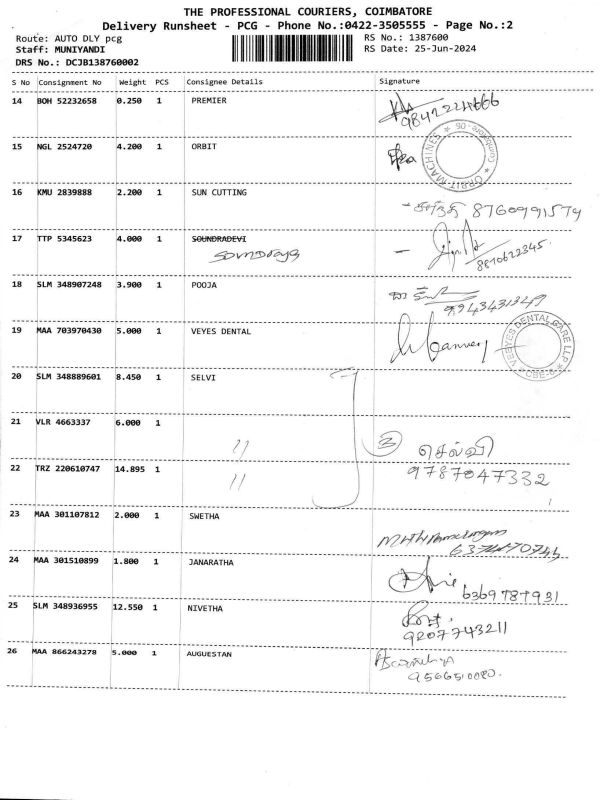 THE PROFESSIONAL COURIERS, COIMBATORE
Delivery Runsheet - PCG - Phone No.:0422-3505555 - Page No.:2
Route: AUTO DLY pcg RS No.: 1387600
Staff: MUNIYANDI RS Date: 25-Jun-2024
DRS No.: DCJB138760002
S No Consignment No Weight PCS Consignee Details Signature
14 BOH 52232658 0.250 1 PREMIER
9842224666
15 NGL 2524720 4.200 1 ORBIT
ORBIT MACHINES * Coimbatore - 06. *
16 KMU 2839888 2.200 1 SUN CUTTING
8760991579
17 TTP 5345623 4.000 1 SOUNDRADEVI
8870622345
18 SLM 348907248 3.900 1 POOJA
9943431247
19 MAA 703970430 5.000 1 VEYES DENTAL
VEEYES DENTAL CARE LLP * CBE-6 *
20 SLM 348889601 8.450 1 SELVI
21 VLR 4663337 6.000 1
" 3 செல்வி
22 TRZ 220610747 14.895 1 9787047332
"
23 MAA 301107812 2.000 1 SWETHA
24 MAA 301510899 1.800 1 JANARATHA
6369787931
25 SLM 348936955 12.550 1 NIVETHA
9207743211
26 MAA 866243278 5.000 1 AUGUESTAN
9566510080.